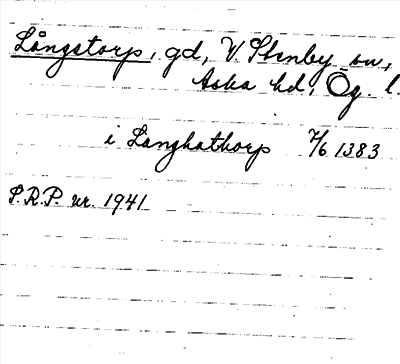 Långstorp, gd, V. Stenby sn,
Aska hd, Ög. l.
i Langhathorp 7/6 1383
S.R.P. nr. 1941